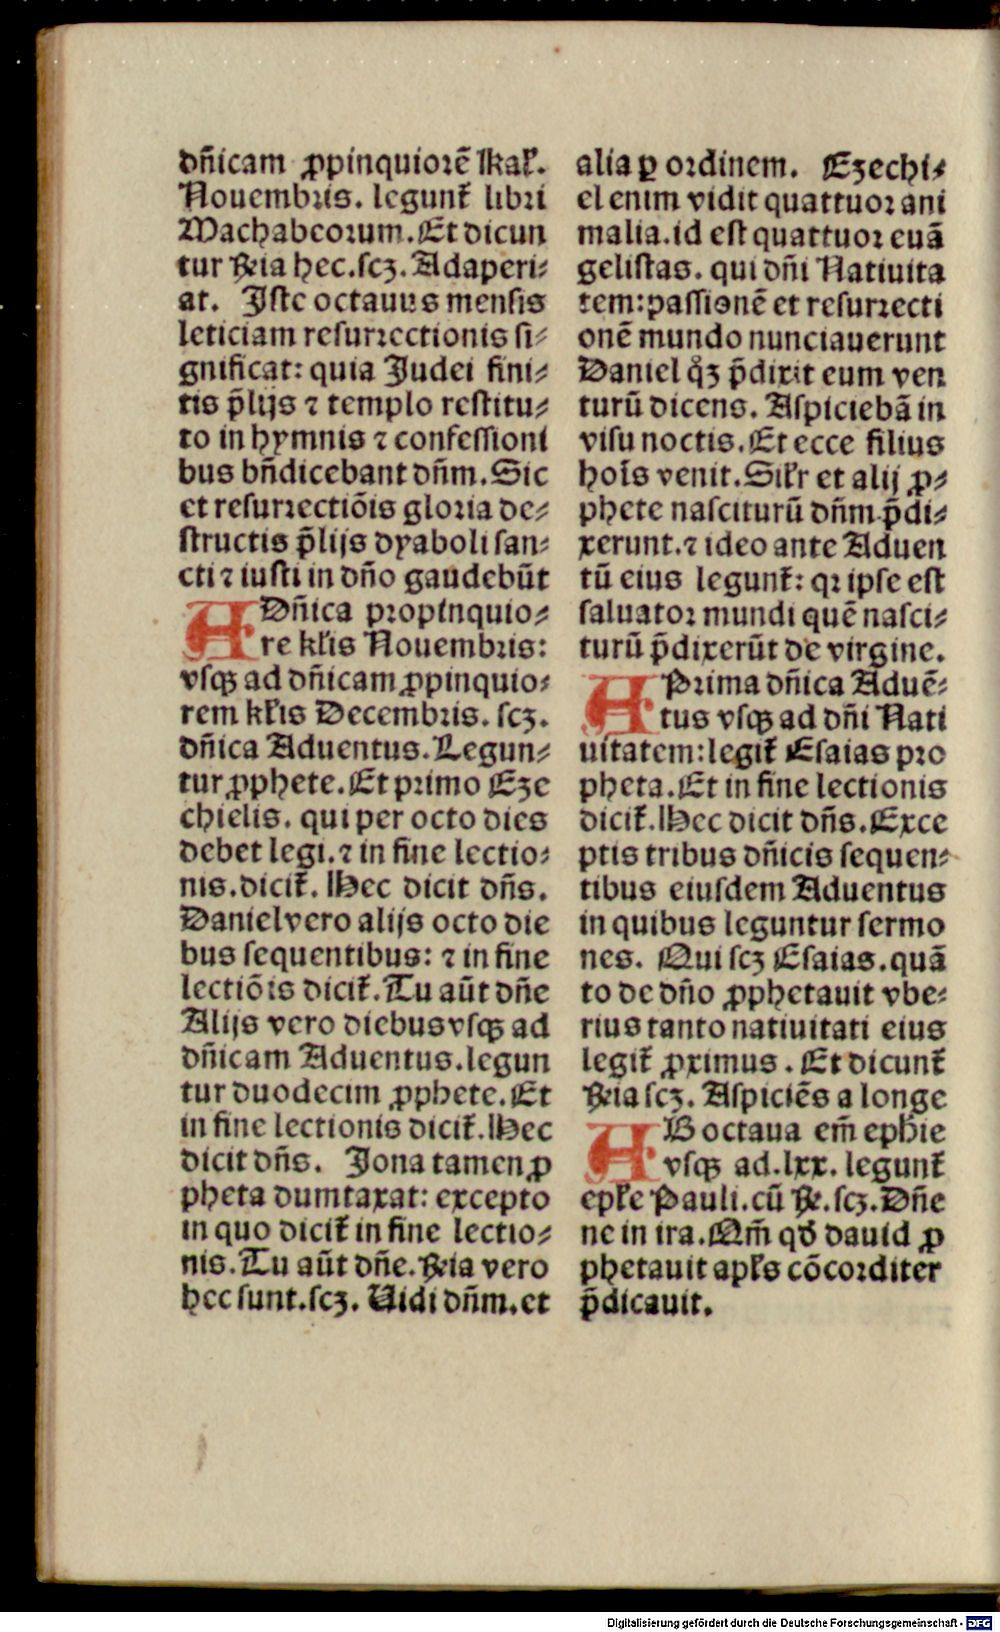 dn̄icam ꝓpinquiorē Kal̕.
Nouembris. legunt̕ libri
Machabeorum. Et dicun
tur ℟ia hec. scꝫ. Adaperi⸗
at. Iste octauus mensis
leticiam resurrectionis si⸗
gnificat: quia Judei fini⸗
tis p̄lijs ⁊ templo restitu⸗
to in hymnis ⁊ confessioni
bus bn̄dicebant dn̄m. Sic
et resurrectiōis gloria de⸗
structis p̄lijs dyaboli san⸗
cti ⁊ iusti in dn̄o gaudebūt
A Dn̄ica propinquio⸗
re kl̕is Nouembris:
vsqꝫ ad dn̄icam ꝓpinquio⸗
rem kl̕is Decembris. scꝫ.
dn̄ica Aduentus. Legun⸗
tur ꝓphete. Et primo Eze
chielis. qui per octo dies
debet legi. ⁊ in fine lectio⸗
nis. dicit̕. Hec dicit dn̄s.
Daniel vero alijs octo die
bus sequentibus: ⁊ in fine
lectiōis dicit̕. Tu aūt dn̄e
Alijs vero diebus vsqꝫ ad
dn̄icam Aduentus. legun
tur duodecim ꝓphete. Et
in fine lectionis dicit̕. Hec
dicit dn̄s. Jona tamen ꝓ
pheta dumtaxat: excepto
in quo dicit̕ in fine lectio⸗
nis. Tu aūt dn̄e. ℟ia vero
hec sunt. scꝫ. Uidi dn̄m. et
alia ꝑ ordinem. Ezechi⸗
el enim vidit quattuor ani
malia. id est quattuor euā
gelistas. qui dn̄i Natiuita
tem: passionē et resurrecti
onē mundo nunciauerunt
Daniel qͦꝫ p̄dixit eum ven
turū dicens. Aspiciebā in
visu noctis. Et ecce filius
hoīs venit. Sil̕r et alij ꝓ⸗
phete nasciturū dn̄m p̄di⸗
xerunt. ⁊ ideo ante Aduen
tū eius legunt̕: qr ipse est
saluator mundi quē nasci⸗
turū p̄dixerūt de virgine.
A Prima dn̄ica Aduē⸗
tus vsqꝫ ad dn̄i Nati
uitatem: legit̕ Esaias pro
pheta. Et in fine lectionis
dicit̕. Hec dicit dn̄s. Exce
ptis tribus dn̄icis sequen⸗
tibus eiusdem Aduentus
in quibus leguntur sermo
nes. Qui scꝫ Esaias. quā
to de dn̄o ꝓphetauit vbe⸗
rius tanto natiuitati eius
legit̕ ꝓximus. Et dicunt̕
℟ia scꝫ. Aspiciēs a longe
AB octaua em̄ eph̄ie
vsqꝫ ad. lxx. legunt̕
epl̕e Pauli. cū ℟. scꝫ. Dn̄e
ne in ira. Qm̄ qđ dauid ꝓ
phetauit apl̕s cōcorditer
p̄dicauit.
Digitalisierung gefördert durch die Deutsche Forschungsgemeinschaft - DFG